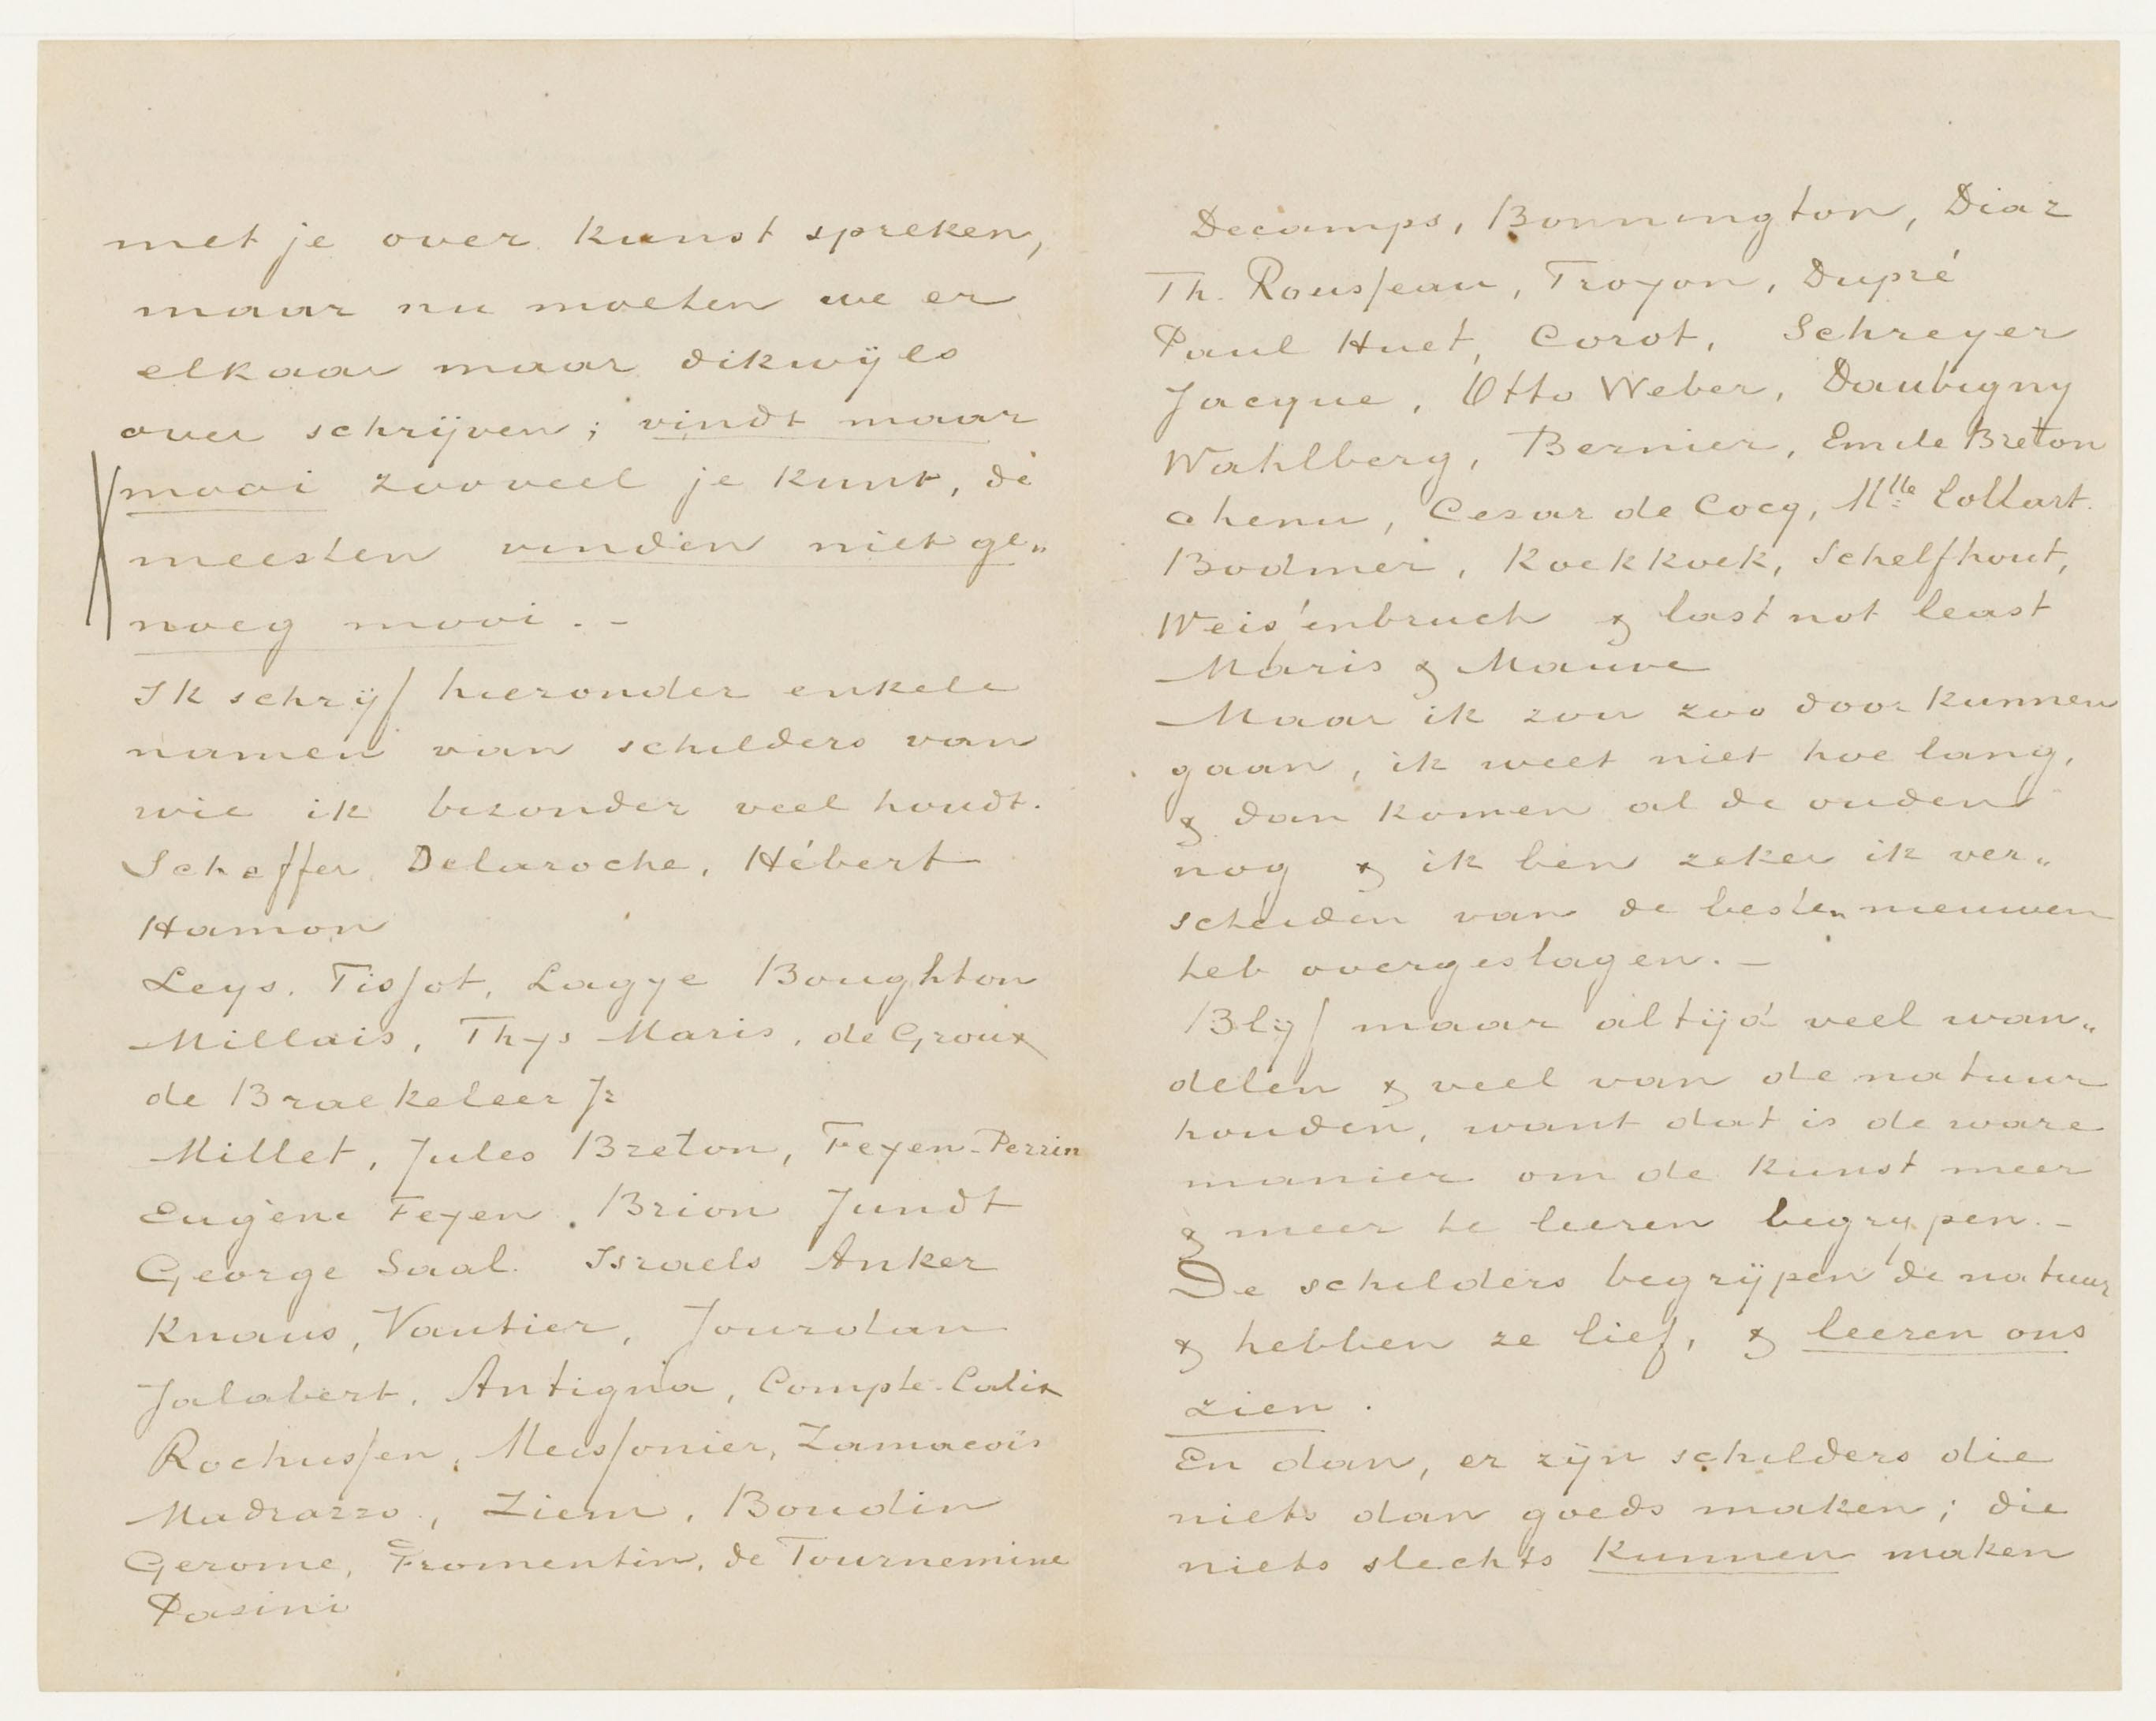 met je over kunst spreken,
maar nu moeten we er
elkaar maar dikwijls
over schrijven; vindt maar
mooi zooveel je kunt, de
meesten vinden niet ge„
noeg mooi. –
Ik schrijf hieronder enkele
namen van schilders van
wie ik bezonder veel houdt.
Scheffer, Delaroche, Hébert
Hamon
Leys. Tissot, Lagye Boughton
Millais, Thys Maris, de Groux
de Braekeleer Jr
Millet, Jules Breton, Feyen-Perrin
Eugène Feyen. Brion Jundt
George Saal. Israels Anker
Knaus, Vautier, Jourdan
Jalabert, Antigna, Compte-Calix
Rochussen, Meissonier, Zamacois
Madrazzo, Ziem, Boudin
Gerome, Fromentin, de Tournemine
Pasini
Decamps, Bonnington, Diaz
Th. Rousseau, Troyon, Dupré
Paul Huet, Corot, Schreyer
Jacque, Otto Weber, Daubigny
Wahlberg, Bernier, Emile Breton
Chenu, Cezar de Cocq, Mlle Collart.
Bodmer, Koekkoek, Schelfhout,
Weissenbruch & last not least
Maris & Mauve
Maar ik zou zoo door kunnen
gaan, ik weet niet hoe lang,
& dan komen al de ouden
nog & ik ben zeker ik ver„
scheiden van de besten nieuwen
heb overgeslagen. –
Blijf maar altijd veel wan„
delen & veel van de natuur
houden, want dat is de ware
manier om de kunst meer
& meer te leeren begrypen. –
De schilders begrijpen de natuur
& hebben ze lief, & leeren ons
zien.
En dan, er zijn schilders die
niets dan goeds maken; die
niets slechts kunnen maken